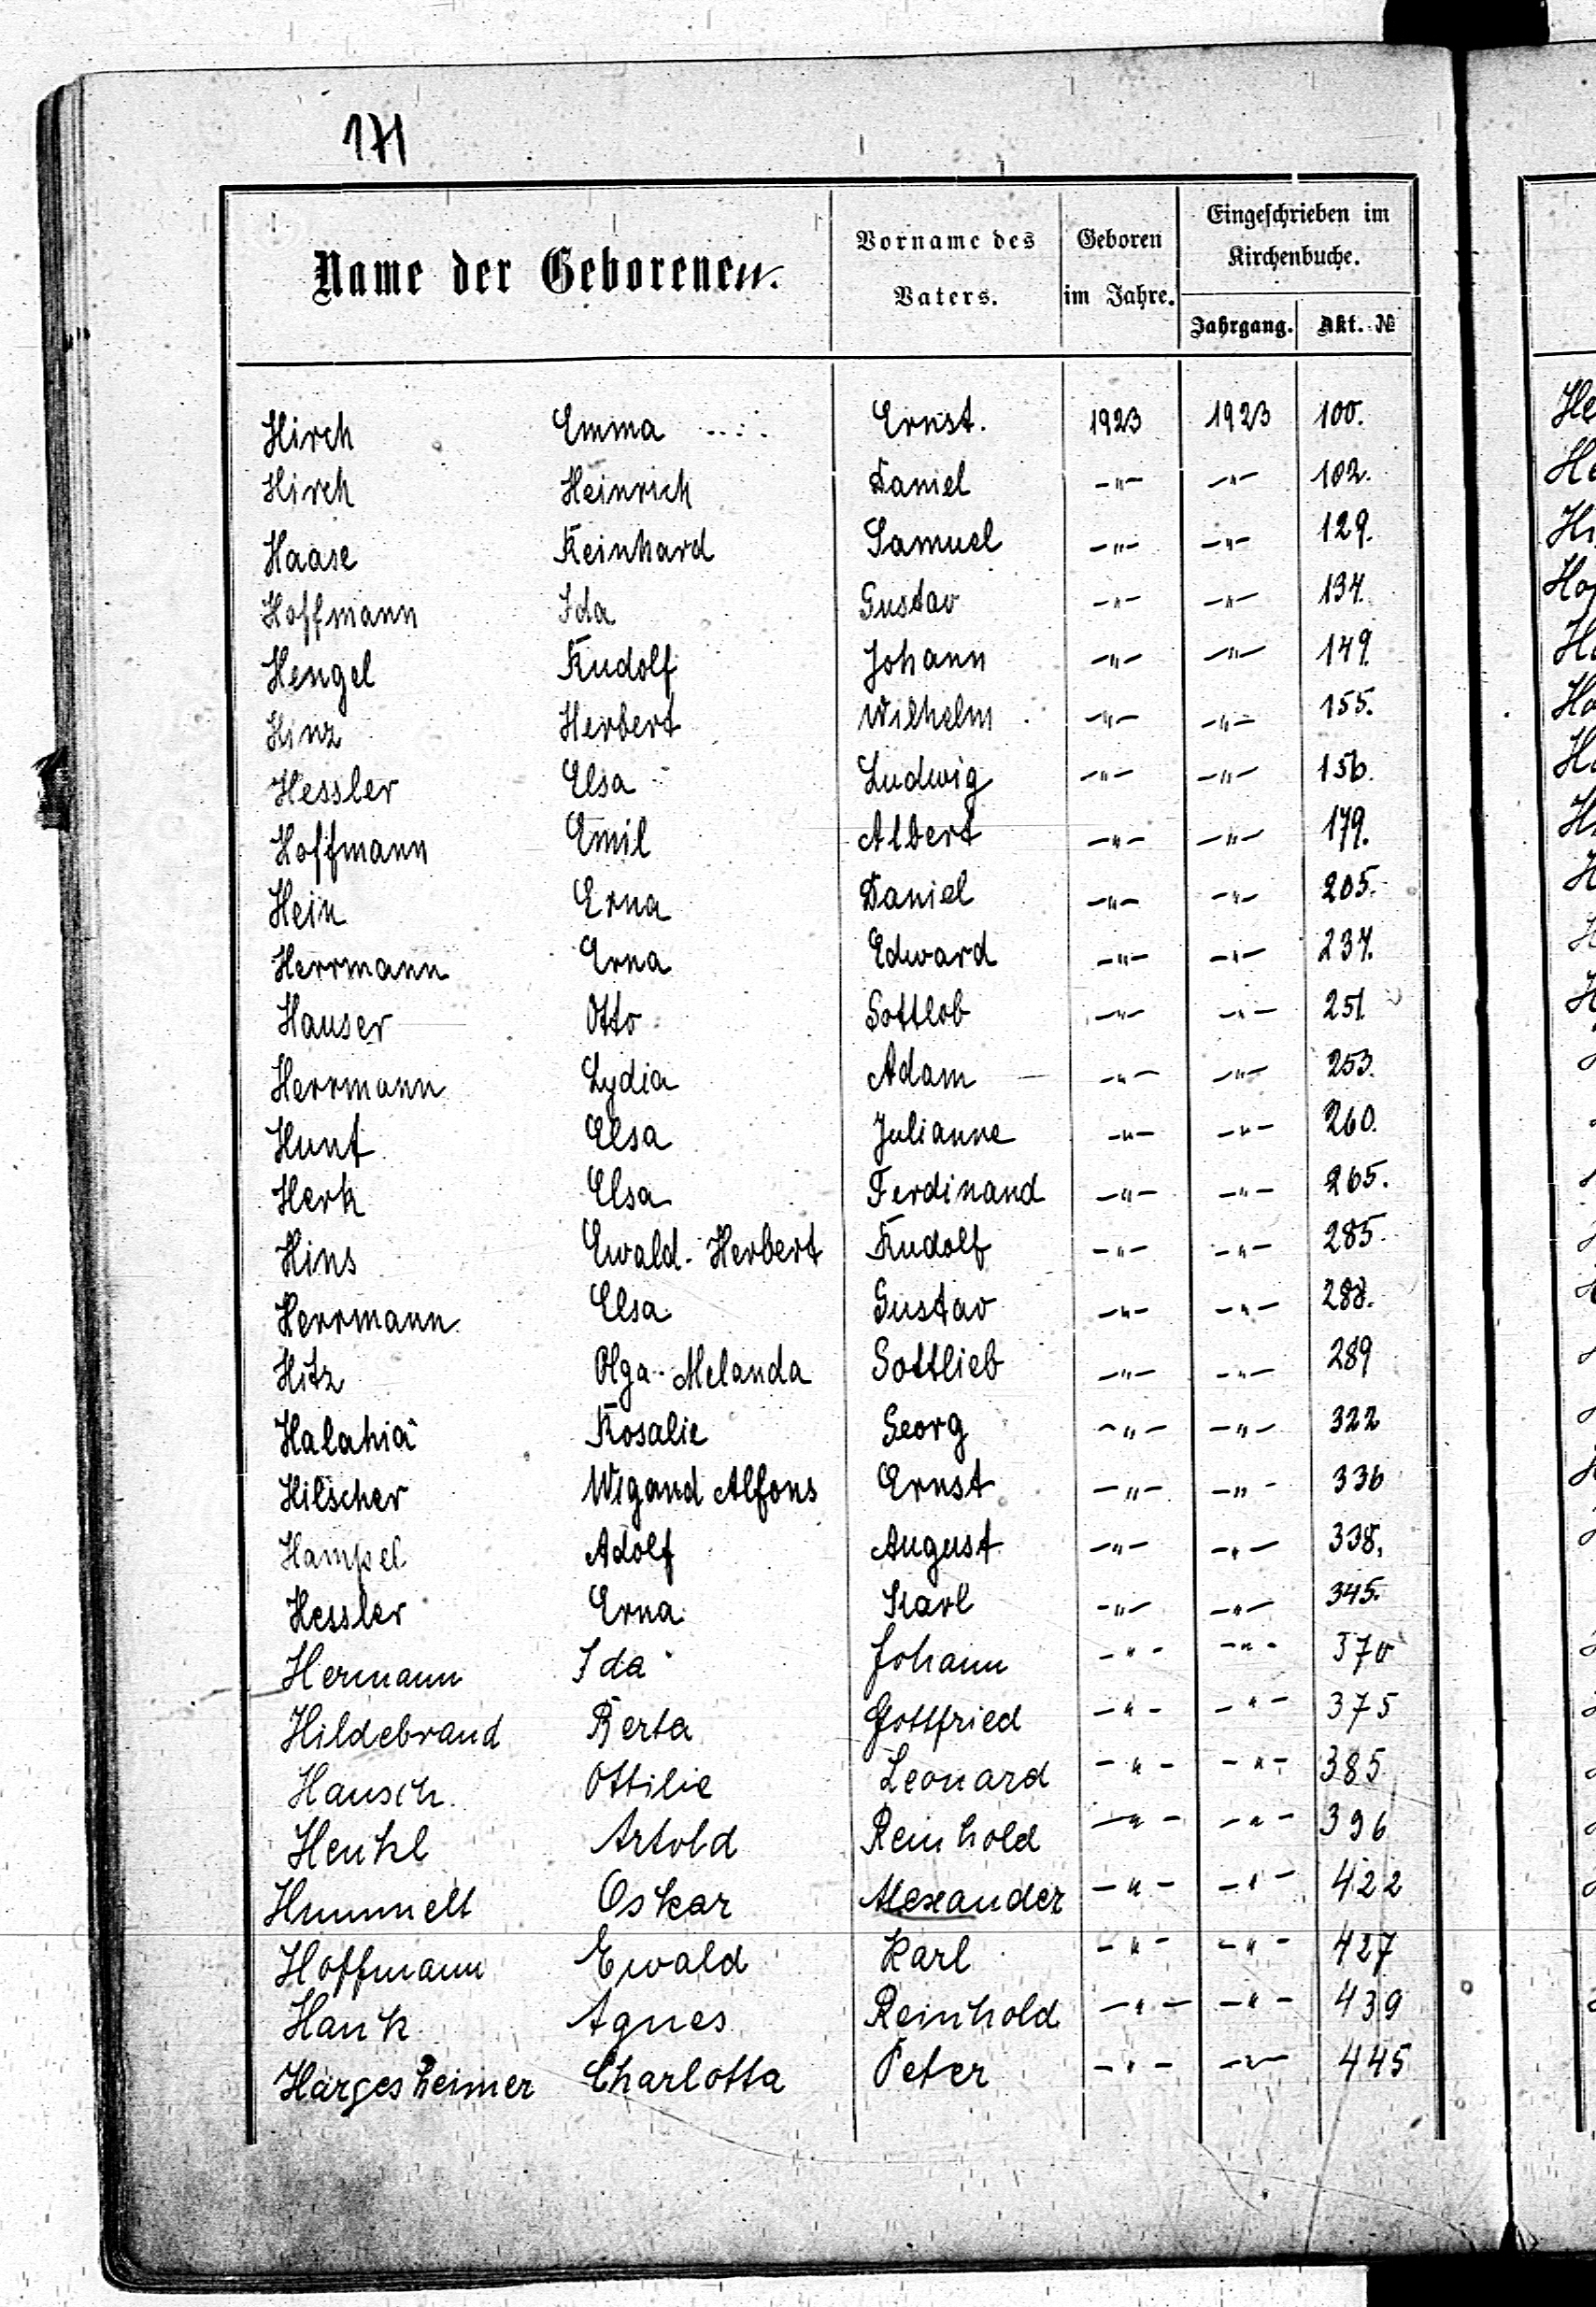 171
Name der Geborenen.
Vorname des Vaters.
Geboren im Jahre.
Eingeschrieben im Kirchenbuche.
Jahrgang. Akt. №
Hirch Emma Ernst. 1923 1923 100.
Hirch Heinrich Daniel -"- -"- 102.
Haase Reinhard Samuel -"- -"- 129.
Hoffmann Ida Gustav -"- -"- 137.
Hengel Rudolf Johann -"- -"- 149.
Hinz Herbert Wilhelm -"- -"- 155.
Hessler Elsa Ludwig -"- -"- 156.
Hoffmann Emil Albert -"- -"- 179.
Hein Erna Daniel -"- -"- 205.
Herrmann Erna Edward -"- -"- 237.
Hauser Otto Gottlob -"- -"- 251
Herrmann Lydia Adam -"- -"- 253.
Hunt Elsa Julianne -"- -"- 260.
Herk Elsa Ferdinand -"- -"- 265.
Hins Ewald-Herbert Rudolf -"- -"- 285.
Herrmann Elsa Gustav -"- -"- 288.
Hitz Olga-Melanda Gottlieb -"- -"- 289
Rosalie Georg -"- -"- 322
Hilscher Wigand Alfons Ernst -"- -"- 336
Hampel Adolf August -"- -"- 338.
Hessler Erna Karl -"- -"- 345.
Hermann Ida Johann -"- -"- 370
Hildebrand Berta Gottfried -"- -"- 375
Hausch Ottilie Leonard -"- -"- 385
Henkl Artold Reinhold -"- -"- 396
Oskar Alexander -"- -"- 422
Hoffmann Ewald Karl -"- -"- 427
Hank Agnes Reinhold -"- -"- 439
Hargesheimer Charlotta Peter -"- -"- 445